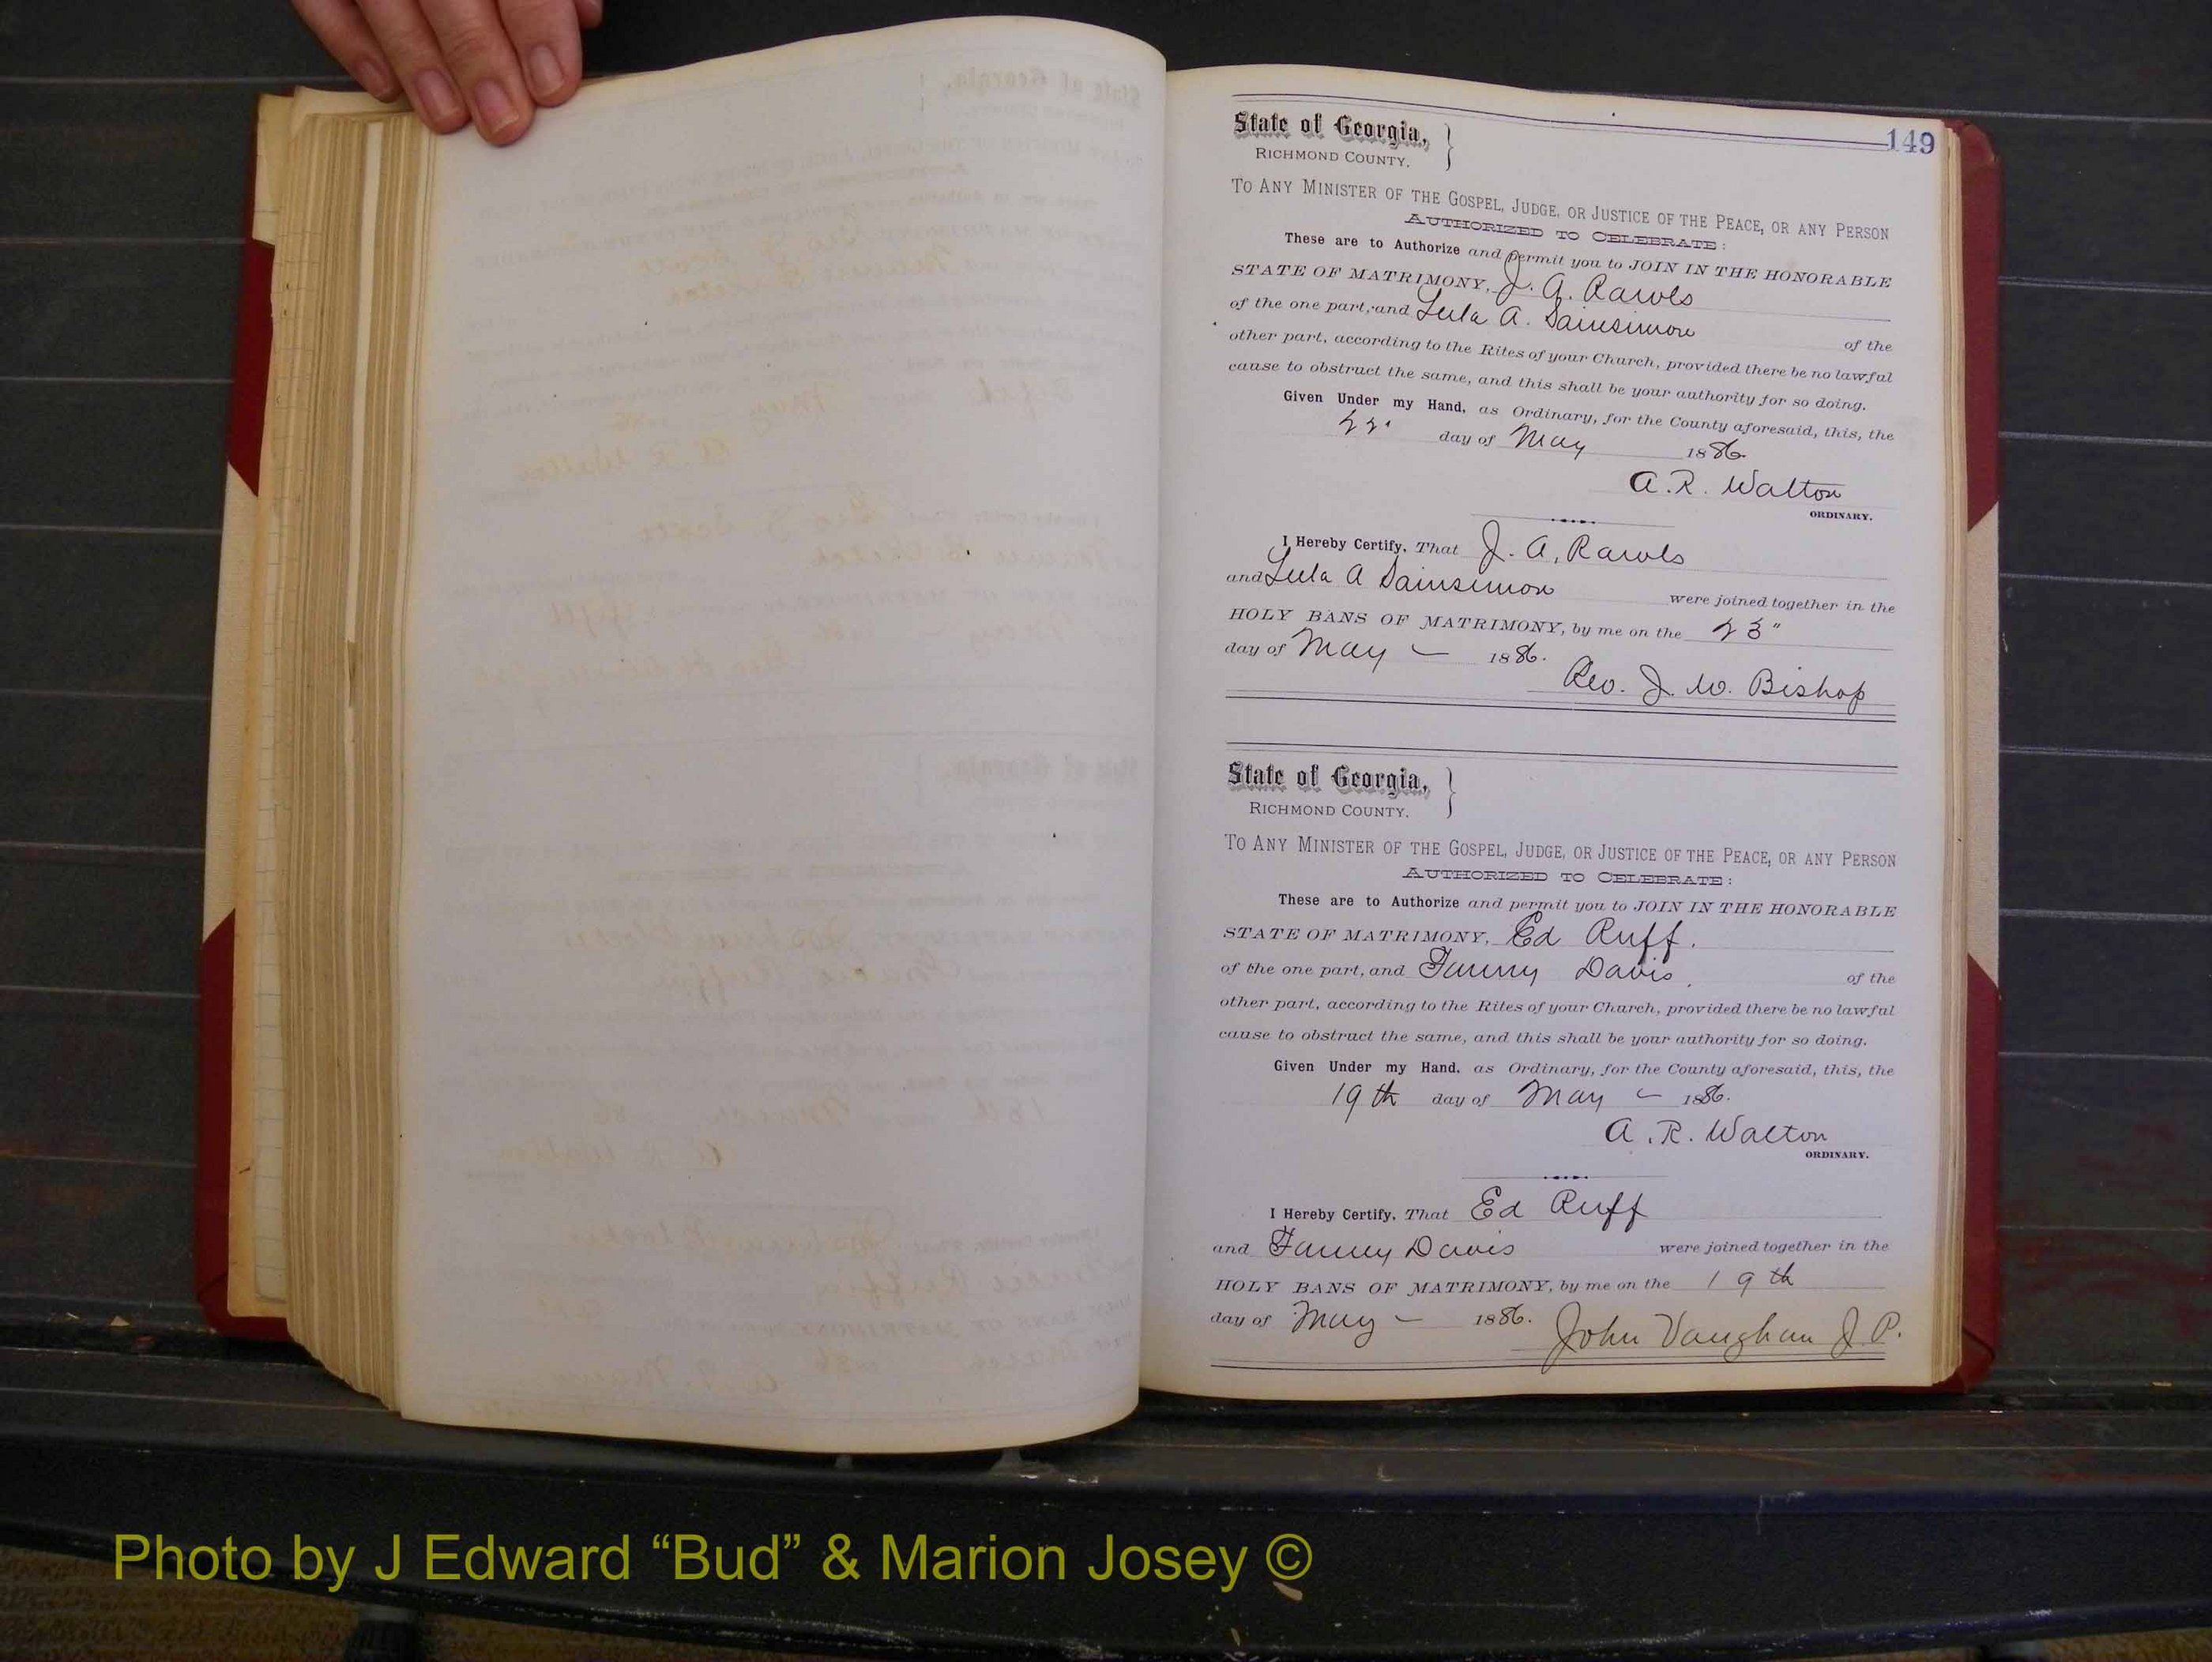 149
State of Georgia,
RICHMOND COUNTY.
TO ANY MINISTER OF THE GOSPEL, JUDGE, OR JUSTICE OF THE PEACE, OR ANY PERSON
AUTHORIZED TO CELEBRATE:
These are to Authorize and permit you to JOIN IN THE HONORABLE
STATE OF MATRIMONY, J. A. Rawls
of the one part, and Lula A. Sainsimon
of the
other part, according to the Rites of your Church, provided there be no lawful
cause to obstruct the same, and this shall be your authority for so doing.
Given Under my Hand, as Ordinary, for the County aforesaid, this, the
22" day of May 1886.
A. R. Walton
ORDINARY.
I Hereby Certify, That J. A. Rawls
and Lula A Sainsimon were joined together in the
HOLY BANS OF MATRIMONY, by me on the 23"
day of May 1886.
Rev. J. W. Bishop
State of Georgia,
RICHMOND COUNTY.
TO ANY MINISTER OF THE GOSPEL, JUDGE, OR JUSTICE OF THE PEACE, OR ANY PERSON
AUTHORIZED TO CELEBRATE:
These are to Authorize and permit you to JOIN IN THE HONORABLE
STATE OF MATRIMONY, Ed Ruff.
of the one part, and Fanny Davis. of the
other part, according to the Rites of your Church, provided there be no lawful
cause to obstruct the same, and this shall be your authority for so doing.
Given Under my Hand, as Ordinary, for the County aforesaid, this, the
19th day of May 1886.
A. R. Walton
ORDINARY.
I Hereby Certify, That Ed Ruff
and Fanny Davis were joined together in the
HOLY BANS OF MATRIMONY, by me on the 19th
day of May 1886. John Vaughan J. P.
Photo by J Edward “Bud” & Marion Josey ©